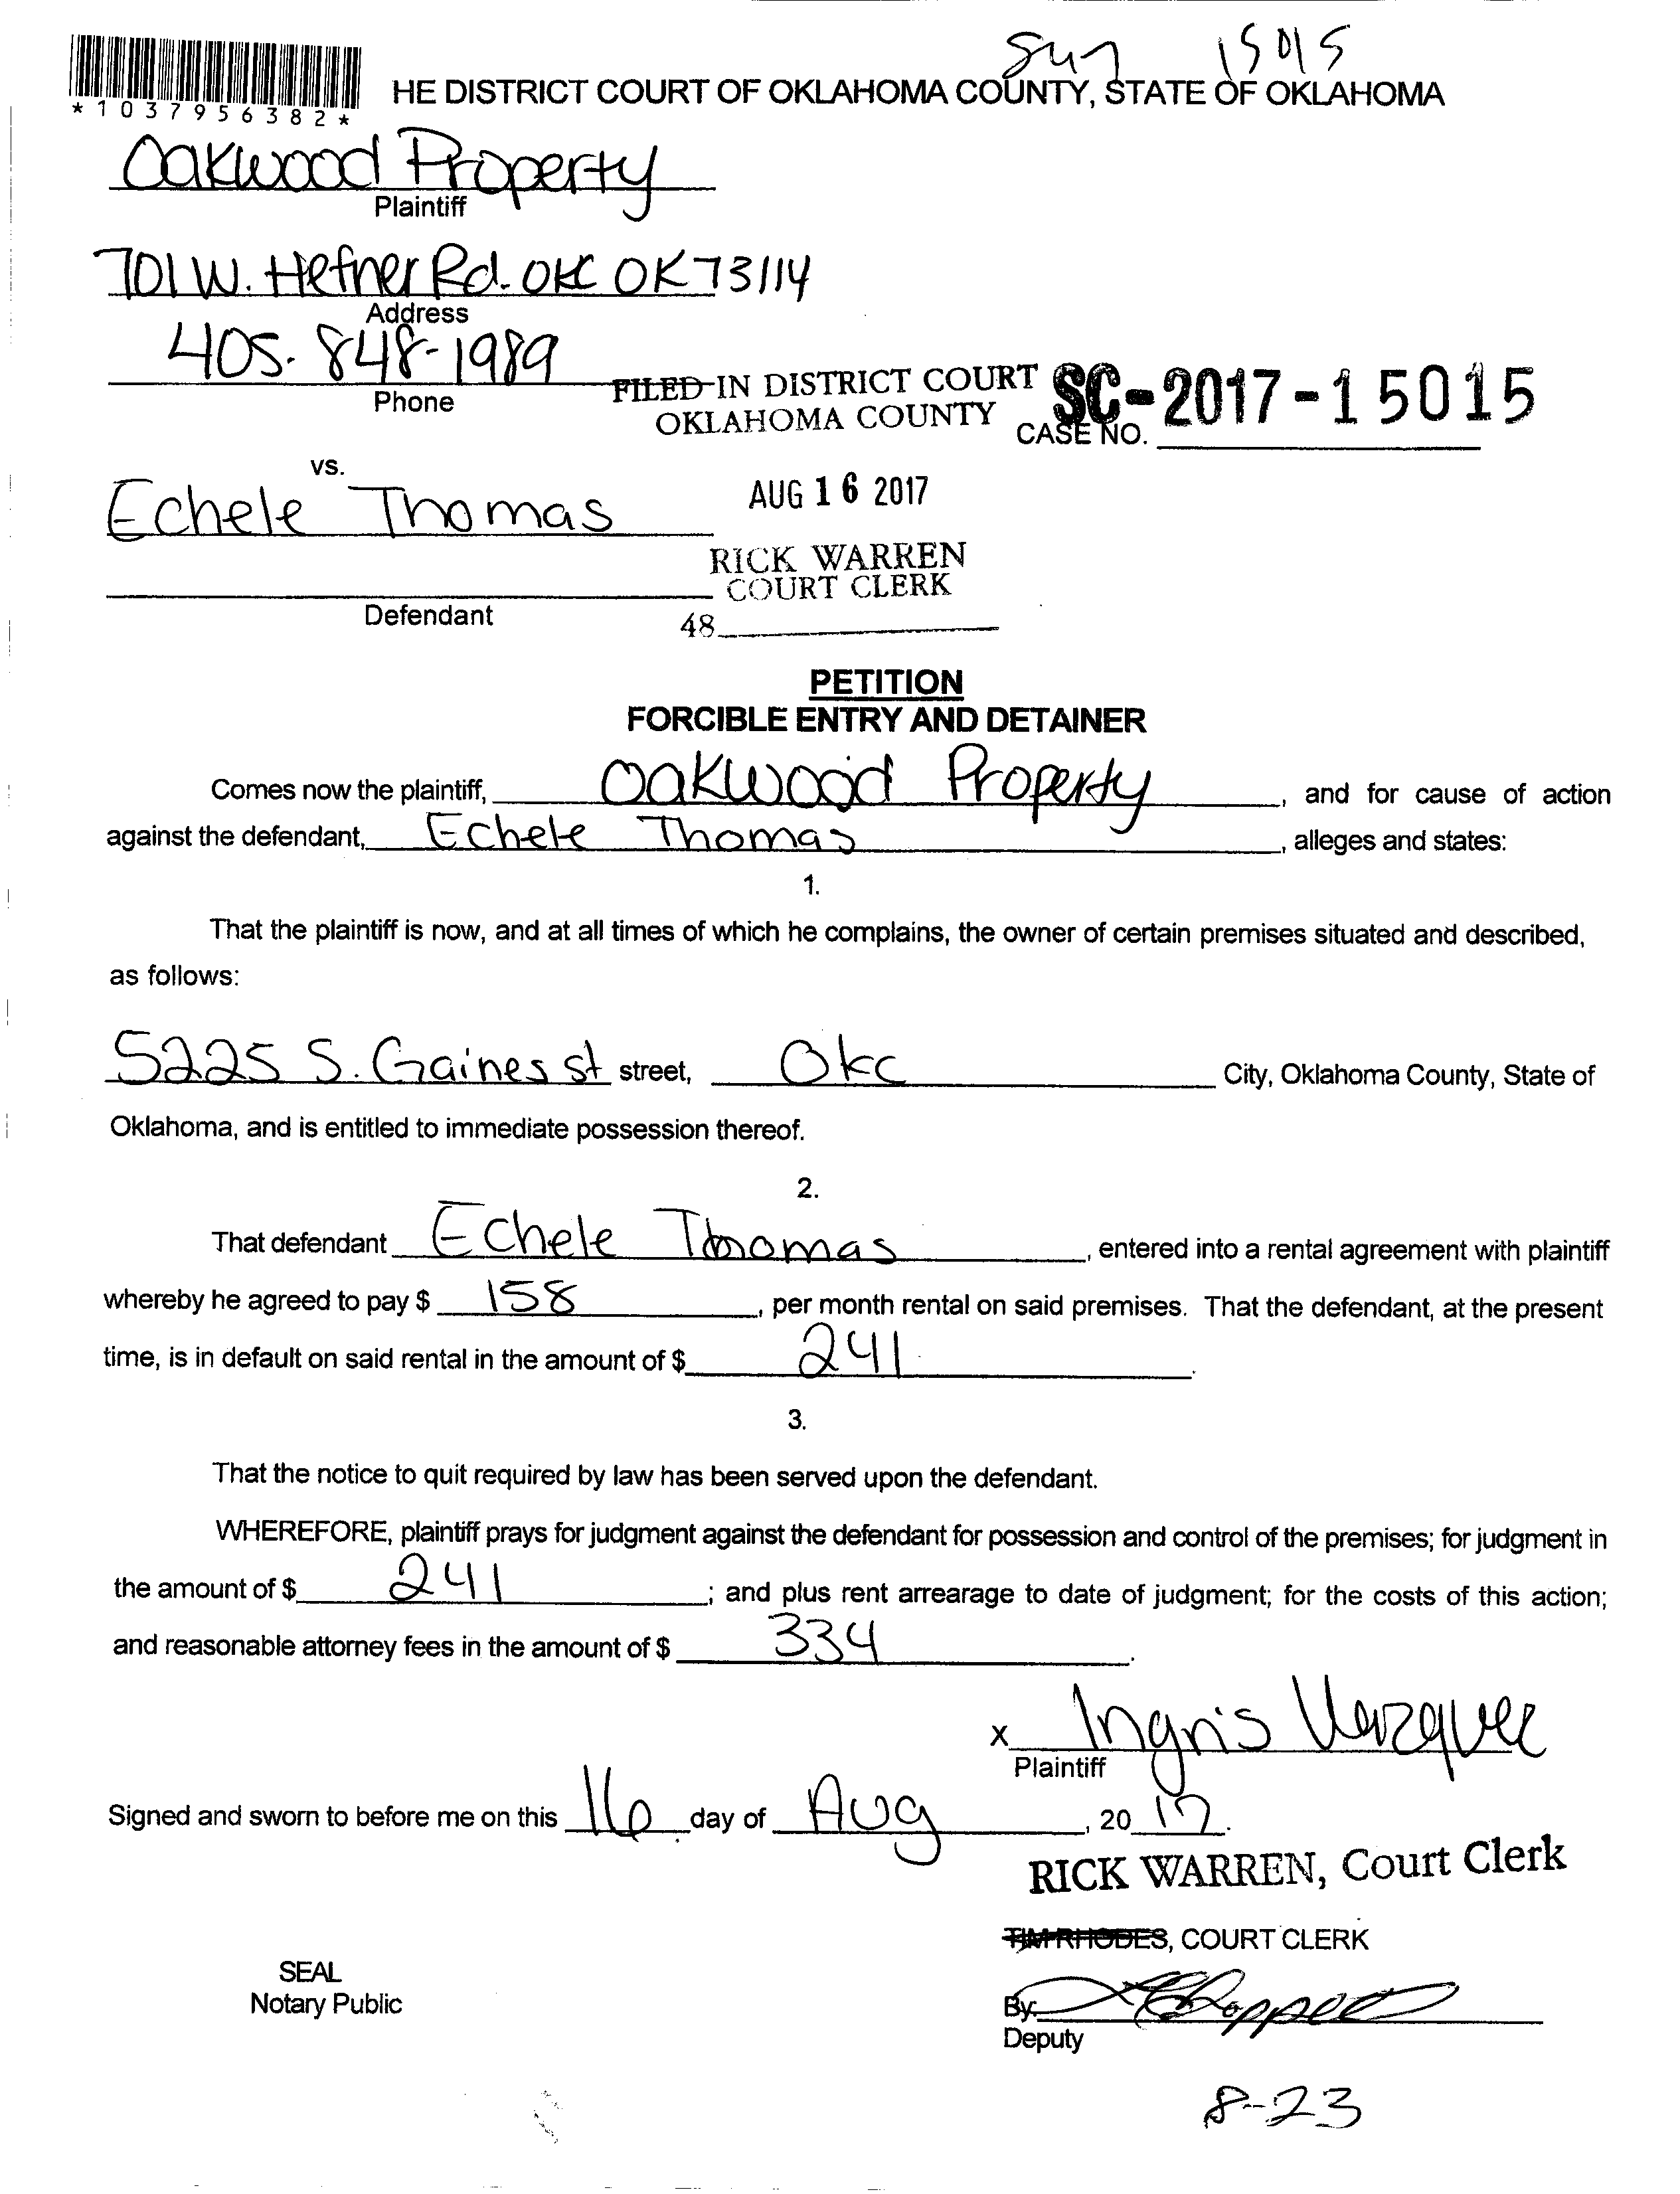 15015
*1037956382*
HE DISTRICT COURT OF OKLAHOMA COUNTY, STATE OF OKLAHOMA
Oakwood Property
Plaintiff
701 W. Hefner Rd. OKC OK 73114
Address
405. 848-1989
Phone
FILED IN DISTRICT COURT
OKLAHOMA COUNTY
SC-2017-15015
CASE NO.
vs.
Echele Thomas
AUG 16 2017
RICK WARREN
COURT CLERK
Defendant
48
PETITION
FORCIBLE ENTRY AND DETAINER
Comes now the plaintiff, Oakwood Property, and for cause of action
against the defendant, Echele Thomas, alleges and states:
1.
That the plaintiff is now, and at all times of which he complains, the owner of certain premises situated and described,
as follows:
5225 S. Gaines st street, Okc City, Oklahoma County, State of
Oklahoma, and is entitled to immediate possession thereof.
2.
That defendant Echele Thomas, entered into a rental agreement with plaintiff
whereby he agreed to pay $ 158, per month rental on said premises. That the defendant, at the present
time, is in default on said rental in the amount of $ 241.
3.
That the notice to quit required by law has been served upon the defendant.
WHEREFORE, plaintiff prays for judgment against the defendant for possession and control of the premises; for judgment in
the amount of $ 241; and plus rent arrearage to date of judgment; for the costs of this action;
and reasonable attorney fees in the amount of $ 334.
X Ingris Vazquez
Plaintiff
Signed and sworn to before me on this 16 day of Aug, 20 17.
RICK WARREN, Court Clerk
TIM RHODES, COURT CLERK
SEAL
Notary Public
By:
Deputy
8-23